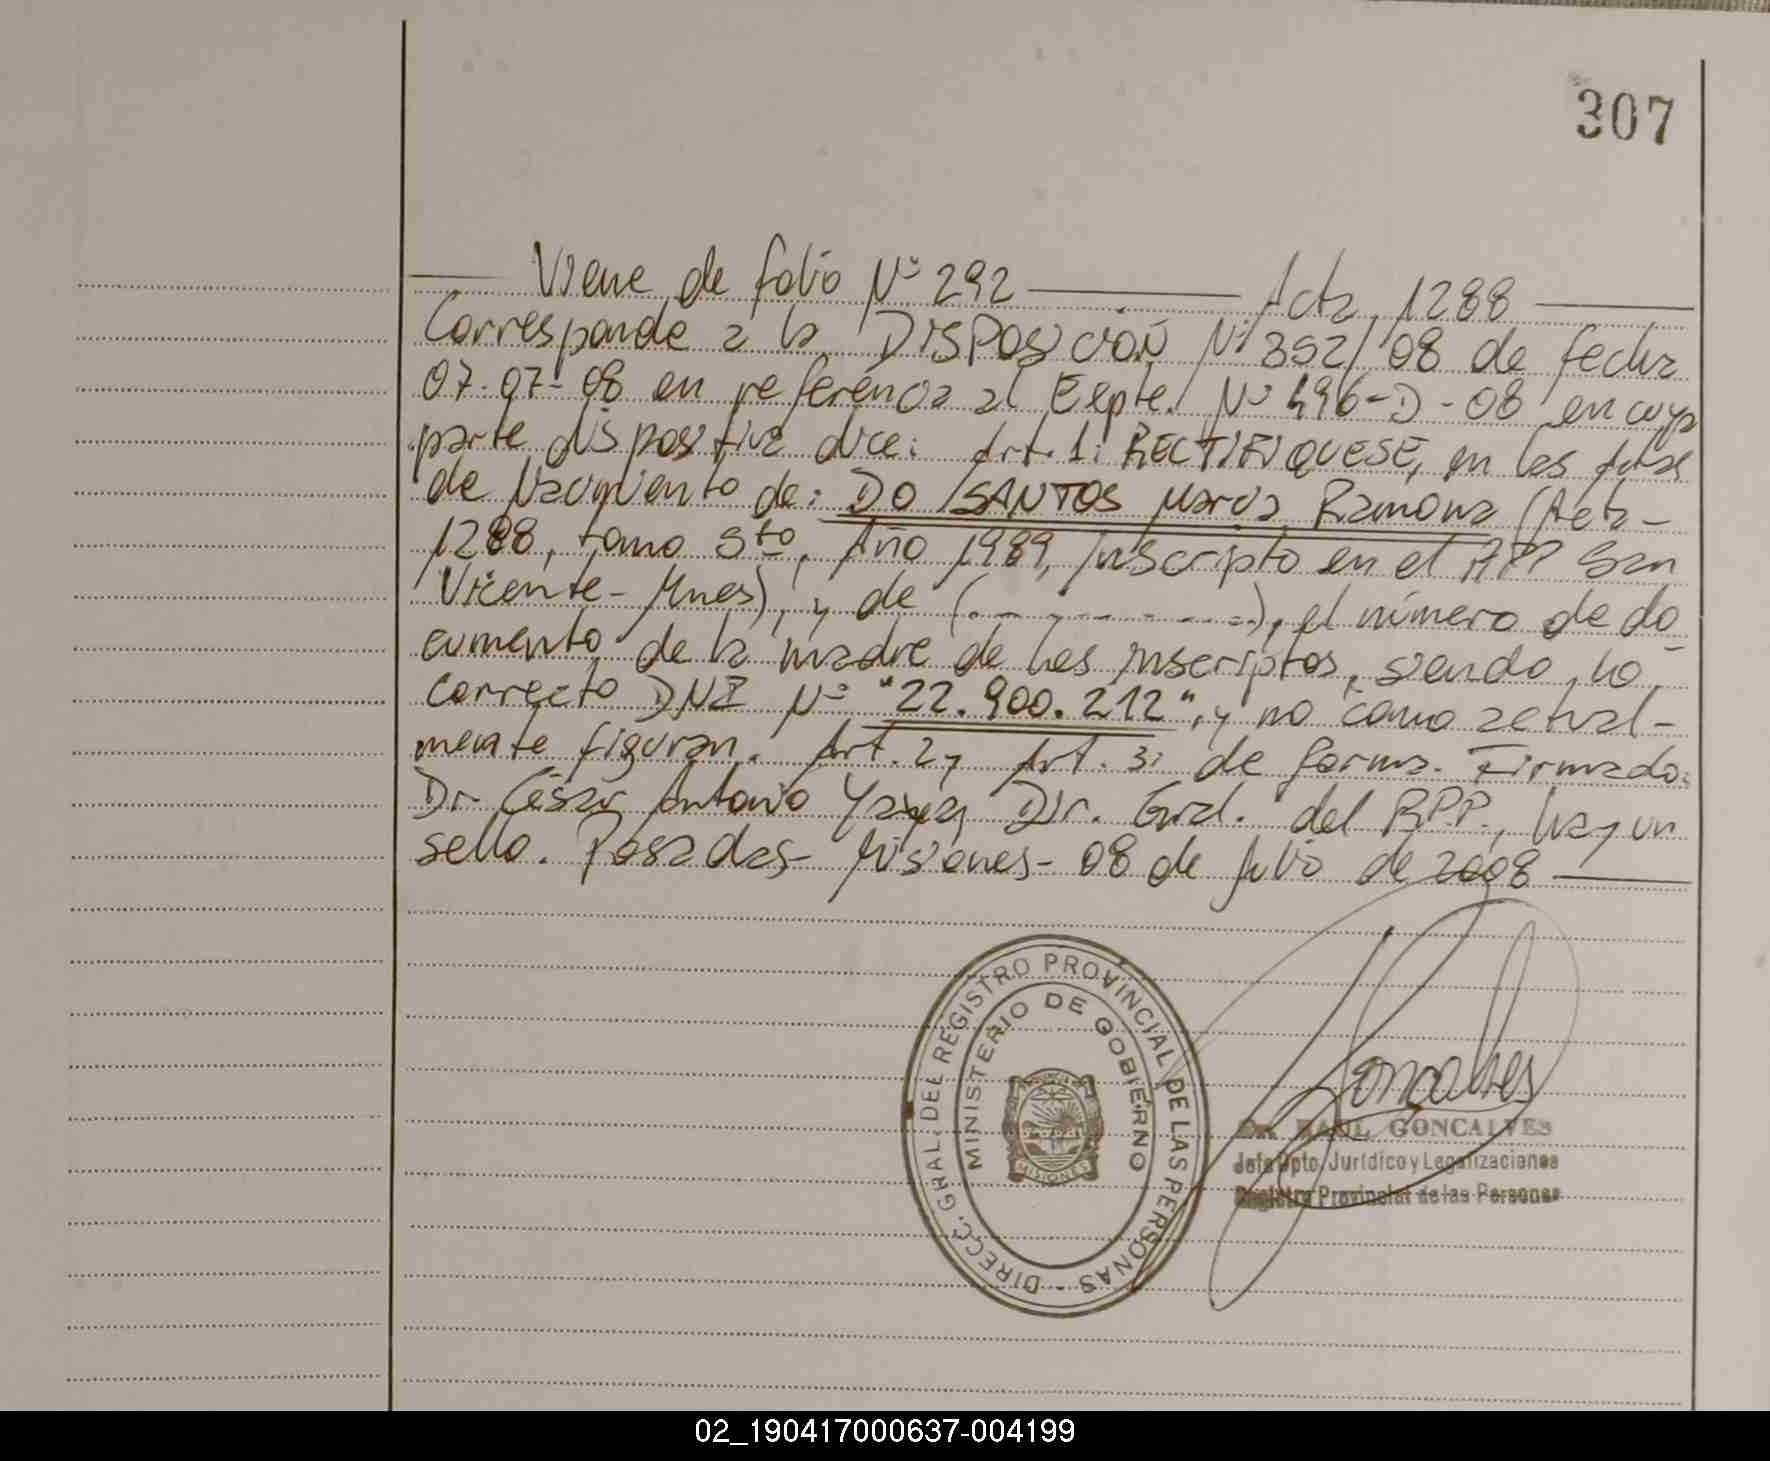 307
Viene de folio Nº 292 Acta 1288
Corresponde a la DISPOSICIÓN Nº 352/08 de fecha
07-07-08 en referencia al Expte. Nº 496-D-08 en cuya
parte dispositiva dice: Art. 1: RECTIFIQUESE, en las Actas
de Nacimiento de: DO SANTOS María Ramona (Acta-
1288, tomo 5to, Año 1989, inscripto en el RPP San
Vicente - Mnes), y de (- - - - - - - - - -), el número de do
cumento de la madre de los inscriptos, siendo lo
correcto DNI Nº "22.900.212", y no como actual-
mente figuran. Art. 2 y Art. 3: de forma. Firmado:
Dr. César Antonio Dir. Gral. del RPP., hay un
sello. Posadas - Misiones - 08 de Julio de 2008
DIRECC. GRAL. DEL REGISTRO PROVINCIAL DE LAS PERSONAS -
MINISTERIO DE GOBIERNO
MISIONES
Goncalves
Dr. RAUL GONCALVES
Jefe Dpto. Jurídico y Legalizaciones
Registro Provincial de las Personas
02_190417000637-004199